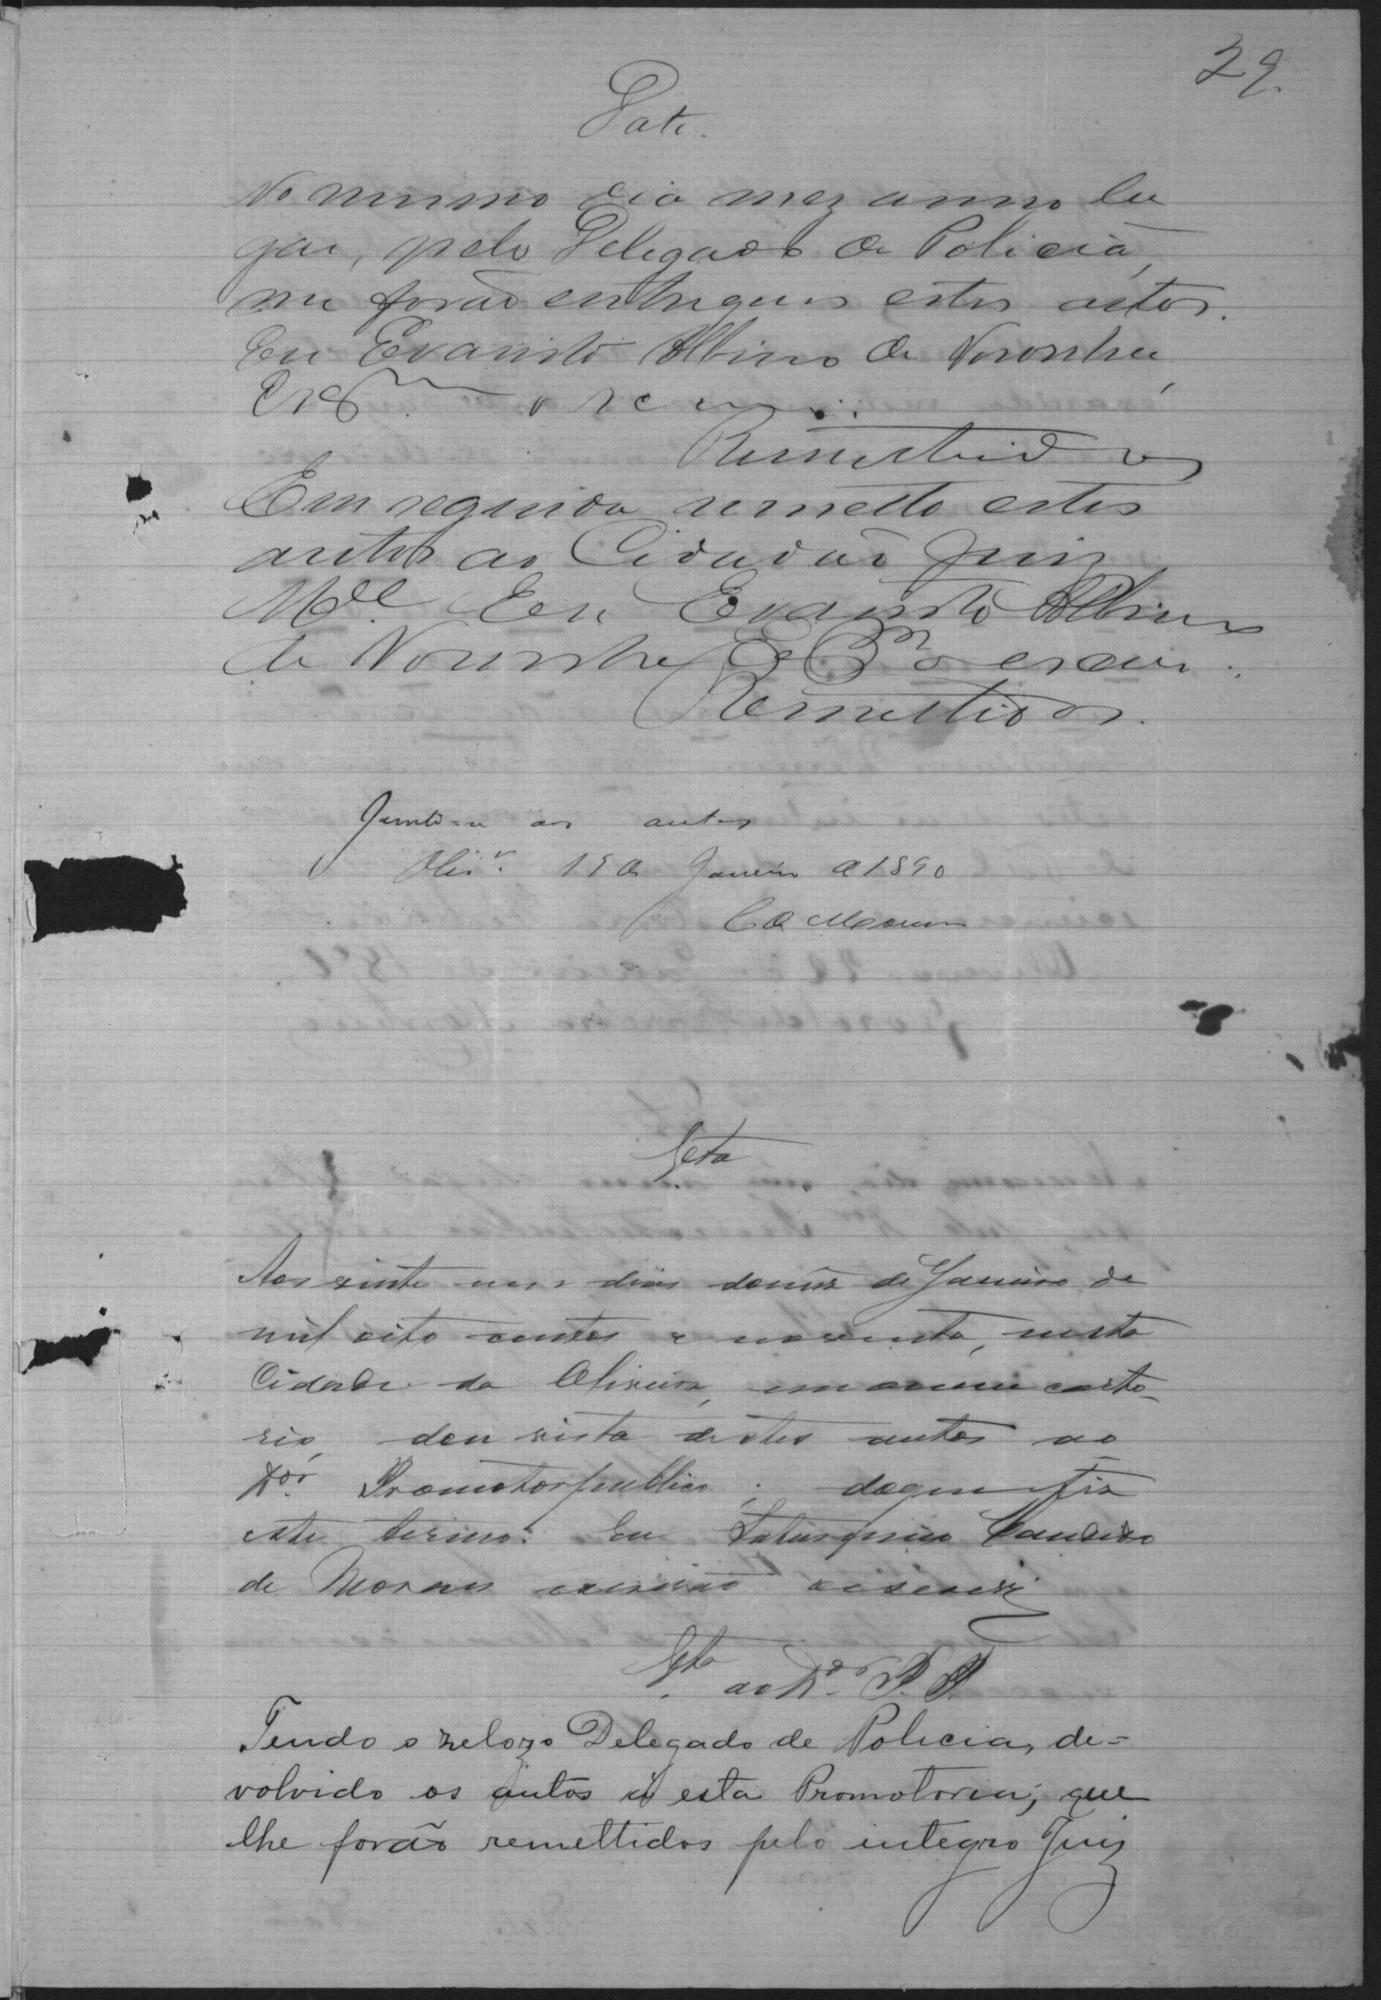 29.
Data.
No mesmo dia mez anno lu
gar, pelo Delegado de Policia,
me forão entregues estes autos.
Eu Evaristo Albino de Noronha
Escr.m o escrevi.
Remettidos
Em seguida remetto estes
autos ao Cidadão Juiz
M.el Eu Evaristo Albino
de Noronha Escr.m o escrevi.
Remettidos.
Junte-se aos autos
Oliv.a 19 de Janeiro de 1890
Vta
Aos vinte um dias do mez de Janeiro de
mil oito centos e noventa, nesta
Cidade da Oliveira, em o meu carto-
rio, dou vista destes autos ao
Dor. Promotor publico; do que fiz
este termo. Eu Candido
de Moraes escrivão o escrevi
Vta ao Dor. P. P.
Tendo o zelozo Delegado de Policia, de=
volvido os autos á esta Promotoria, que
lhe forão remettidos pelo integro Juiz